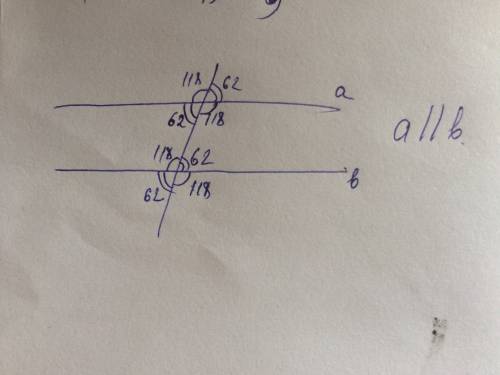 118 62
a
62 118
a||b
118 62
62 118
b